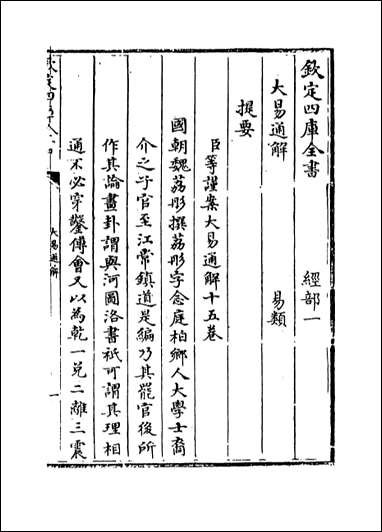 欽定四庫全書　經部一
大易通解　易類
提要
臣等謹案大易通解十五卷
國朝魏荔彤撰荔彤字念庭柏鄉人大學士裔
介之子官至江常鎮道是編乃其罷官後所
作其論畫卦謂與河圖洛書祇可謂其理相
通不必穿鑿傅會又以為乾一兌二離三震
大易通解
一